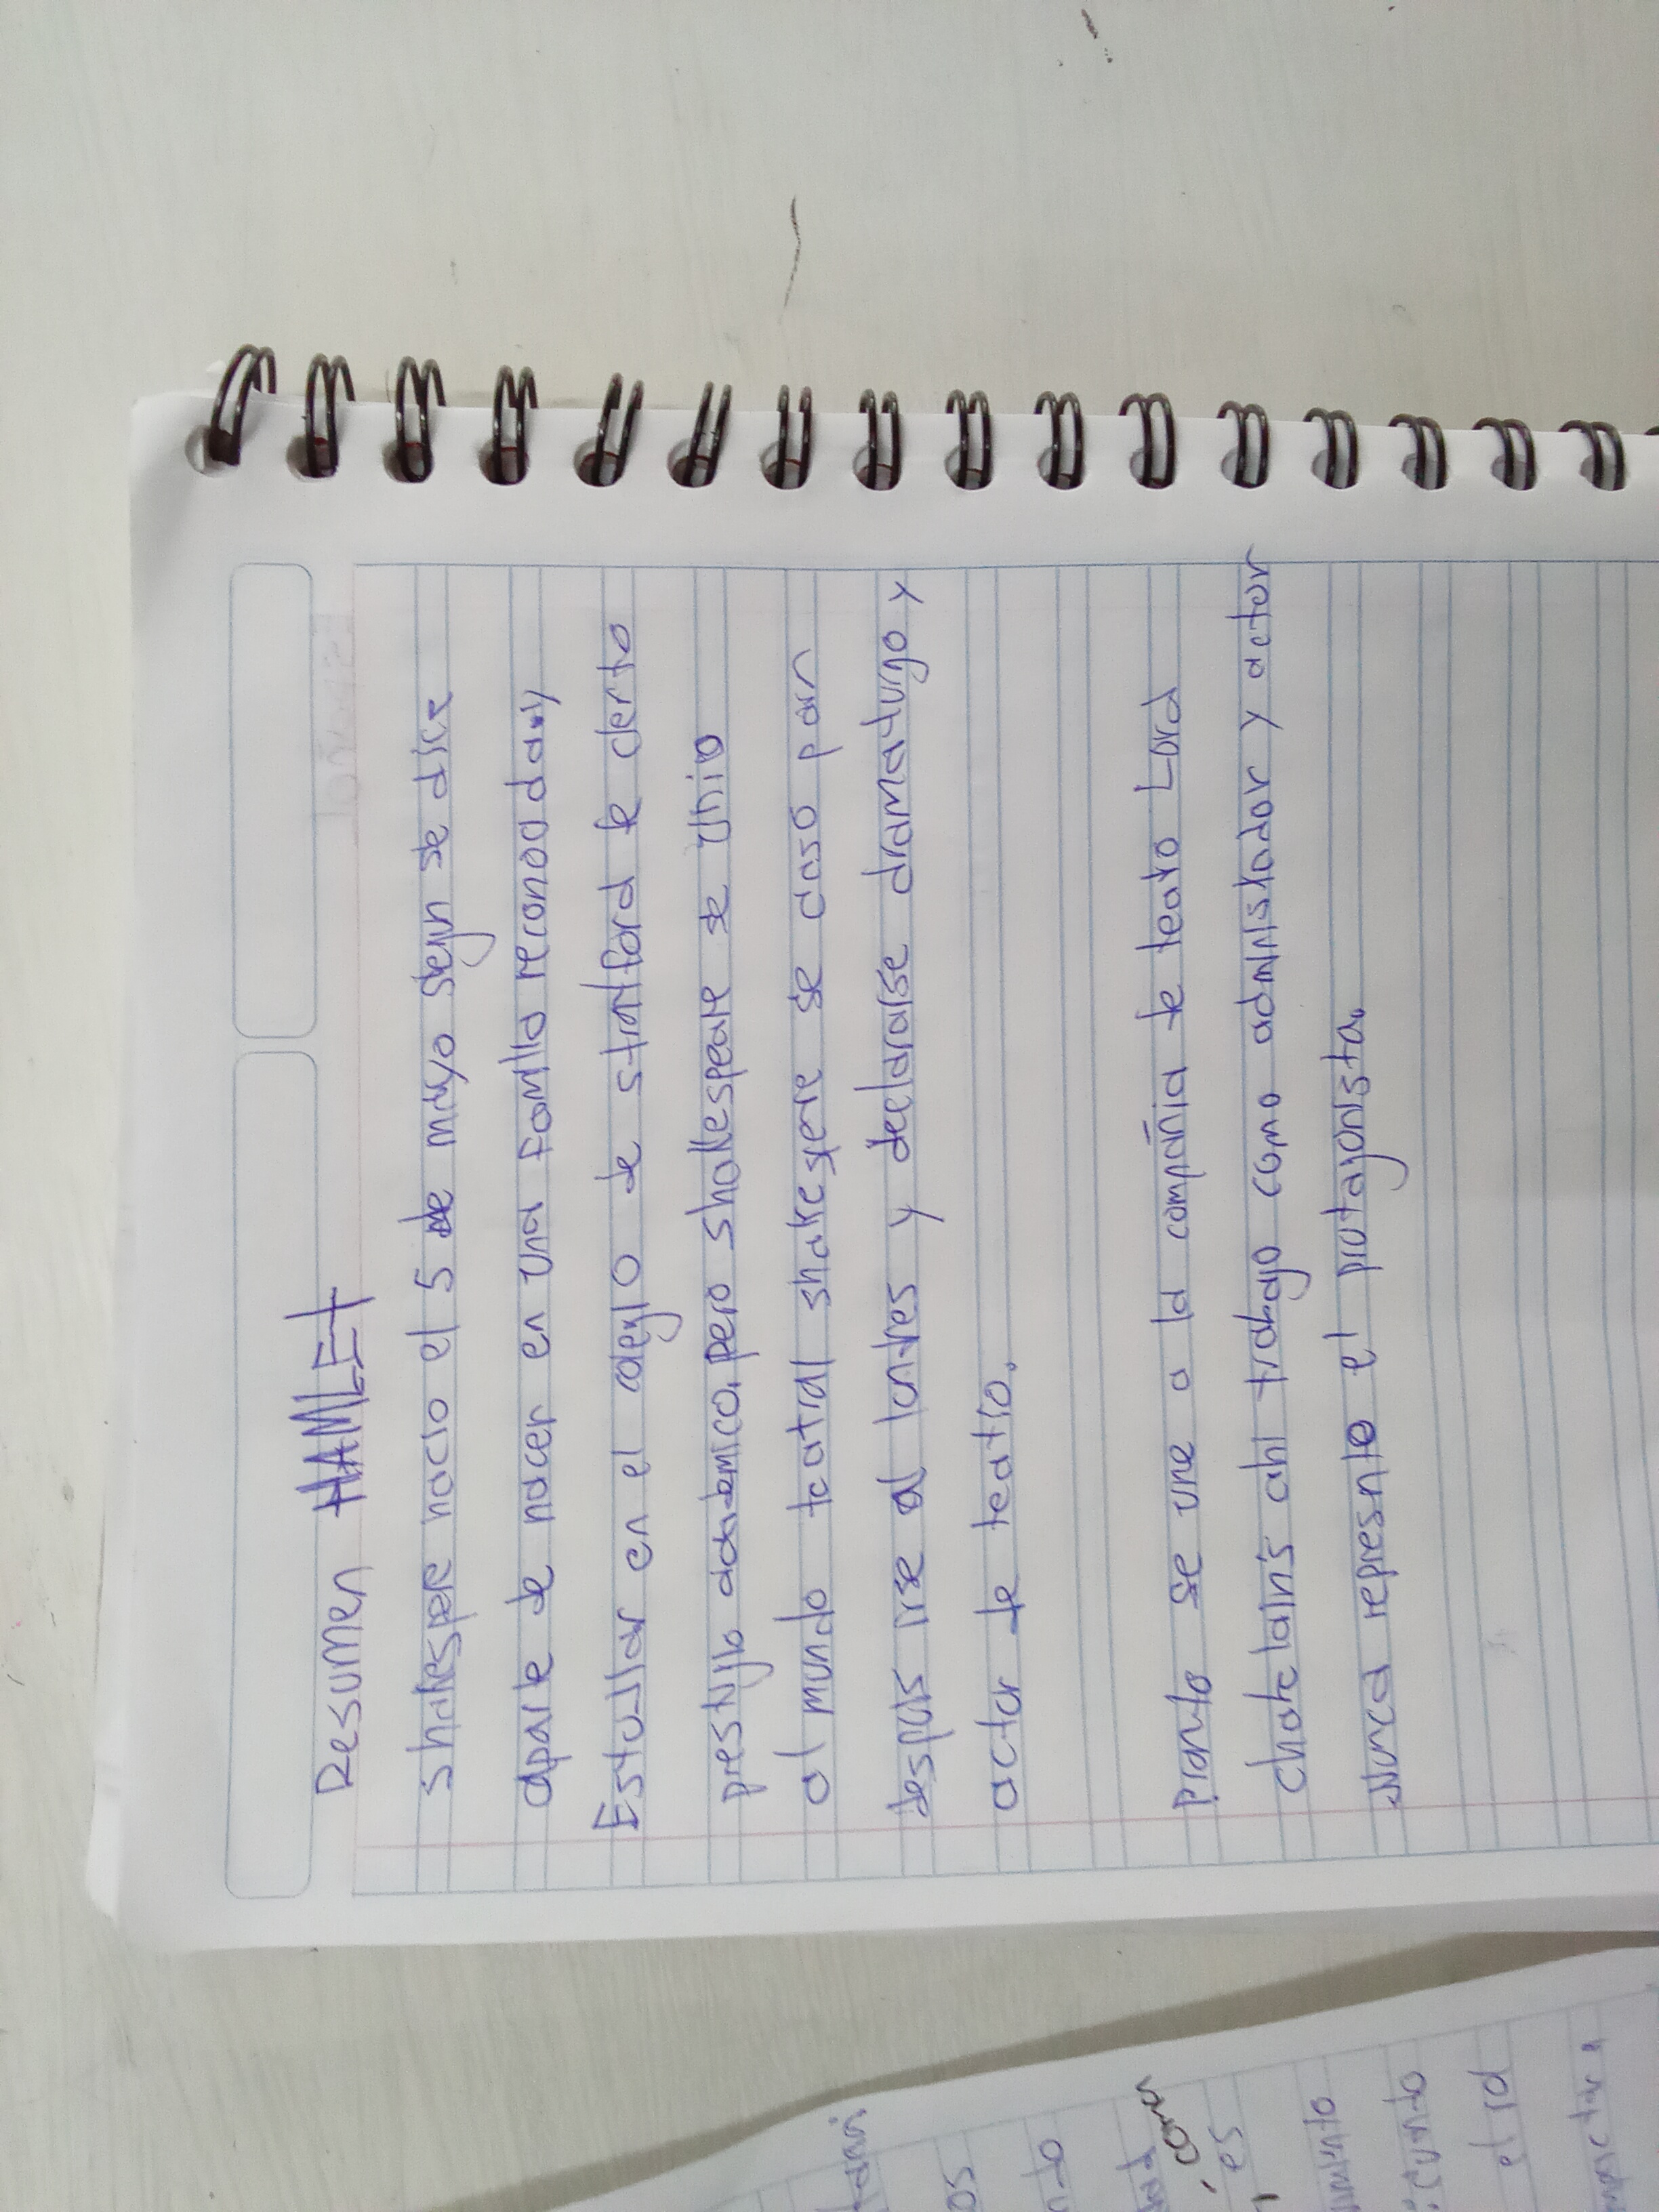 Resumen HAMLEt
shakespere nacio el 5 de mayo segun se dice
aparte de nacer en una familia reconocida y
Estudiar en el colegio de strantford de cierto
prestigio academico, pero shakespeare se unio
al mundo teatral shakespere se caso par
despues irse al lontres y declararse dramaturgo y
actor de teatro.
Pronto se une a la compañia de teatro Lord
chatelain's ahi trabajo como administrador y actor
Nunca represnto el protagonista.
es
el